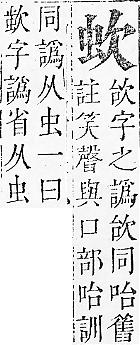 欱字之譌欱同咍舊
註笑聲與口部咍訓
同譌从虫一曰
字譌省从虫